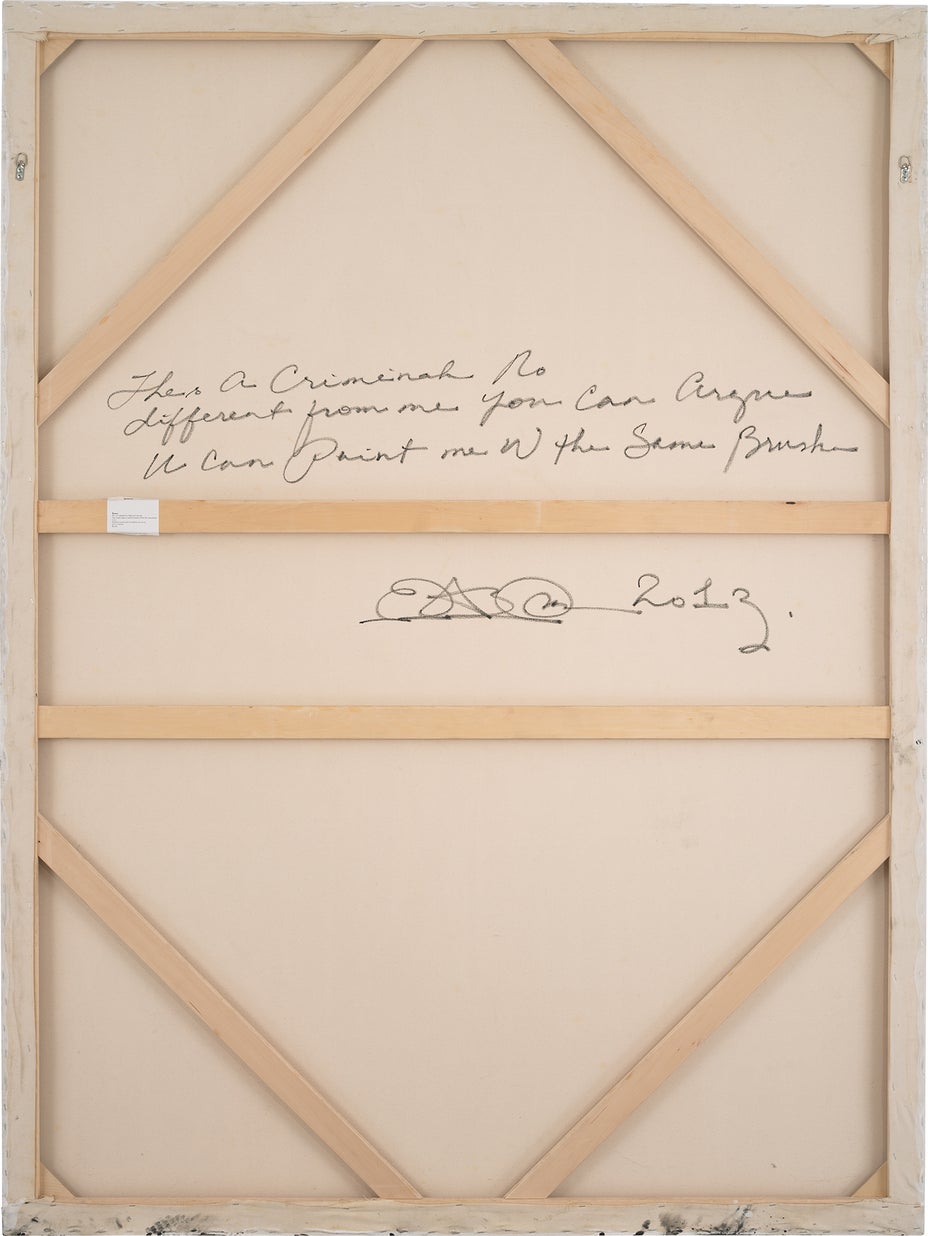 Thes A Crimeinal No
different from me you can Argue
U can Paint me W the Same Brush
2013.